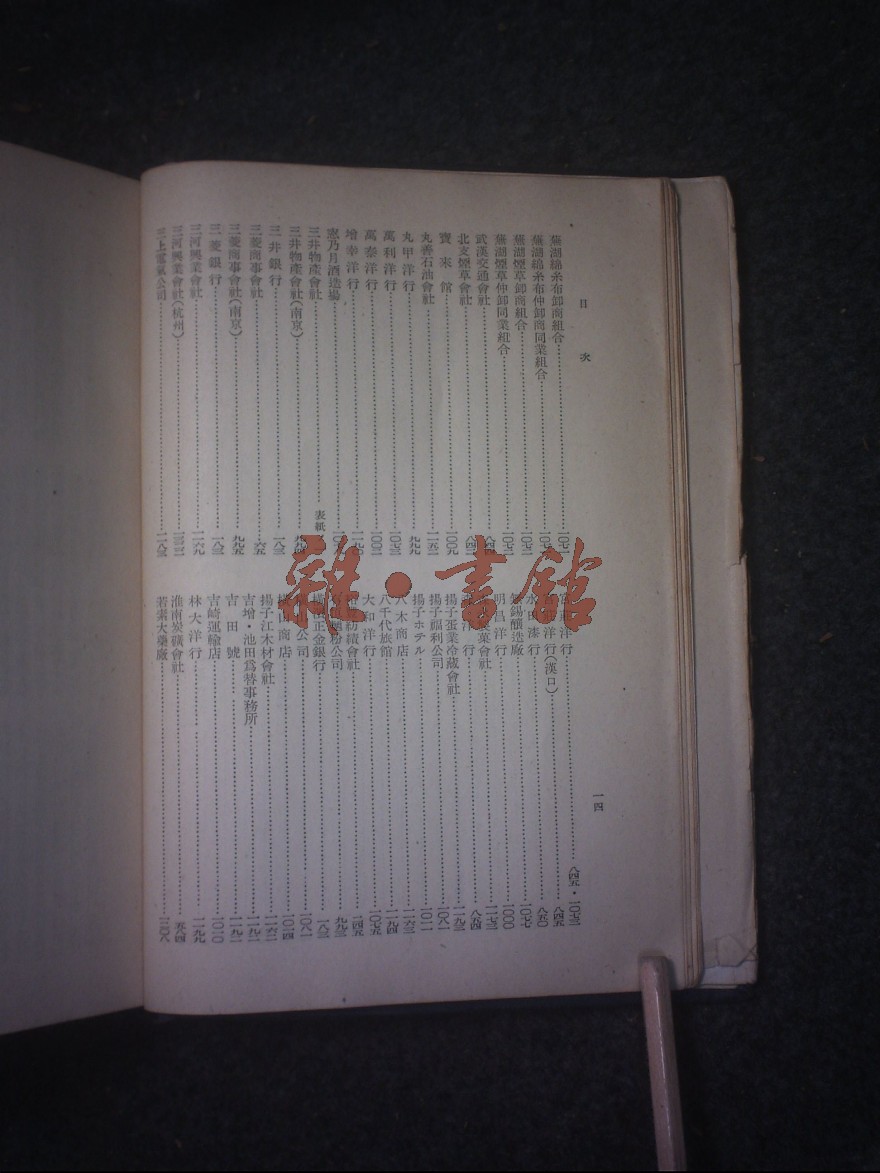 目次
蕪湖綿糸布卸商組合……一〇七一
蕪湖綿糸布仲卸商同業組合……一〇七一
蕪湖煙草卸商組合……一〇七二
蕪湖煙草仲卸同業組合……一〇七二
武漢交通會社……
北支煙草會社……
寶來館……一〇〇九
丸善石油會社……一一五一
丸甲洋行……九九九
萬利洋行……一〇七三
萬泰洋行……一〇〇二
增幸洋行……一一九〇
窓乃月酒造場……
三井物產會社……表紙
三井物產會社(南京)……
三井銀行……一八三
三菱商事會社……六五
三菱商事會社(南京)……九九五
三菱銀行……一八三
三河興業會社……一一六九
三河興業會社(杭州)……
三上電氣公司……一一八三
洋行……八四五・一〇七三
洋行(漢口)……八四五
永田漆行……八五〇
無錫釀造廠……一〇七七
明昌洋行……一〇〇〇
葉會社……一一七三
洋行……八五四
揚子蛋業冷藏會社……一一九三
揚子福利公司……一〇八一
揚子ホテル……一〇一一
八木商店……一一六三
八千代旅館……一一九四
大和洋行……一〇七五
紡績會社……一四五
公司……九九三
橫濱正金銀行……一八三
公司……一〇八一
橫田商店……一〇一四
揚子江木材會社……一一六二
吉增・池田爲替事務所……一一九二
吉田號……一一九二
吉崎運輸店……一〇一〇
林大洋行……一一九九
淮南炭礦會社……五八四
若素大藥廠……三〇八
一四
雜・書舘